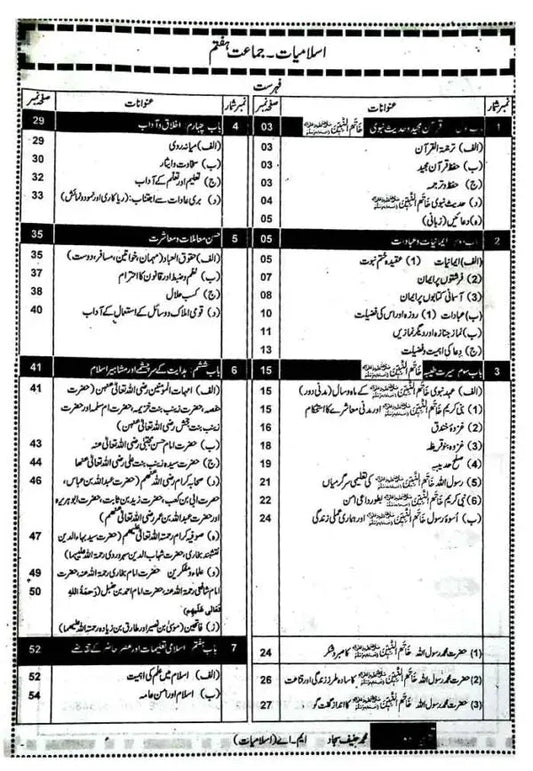 اسلامیات۔ جماعت ہفتم
فہرست
نمبر شمار عنوانات صفحہ نمبر
1 قرآن مجید و حدیث نبوی خَاتَمُ النَّبِیّٖنَ ﷺ 03
(الف) ترجمۃ القرآن 03
(ب) حفظ قرآن مجید 03
(ج) حفظ و ترجمہ 03
(د) حدیث نبوی خَاتَمُ النَّبِیّٖنَ ﷺ 04
(ہ) دعائیں (زبانی) 05
2 باب دوم ایمانیات و عبادات 05
(الف) ایمانیات (1) عقیدہ ختم نبوت 05
(2) فرشتوں پر ایمان 07
(3) آسمانی کتابوں پر ایمان 08
(ب) عبادات (1) روزہ اور اس کی فضیلت 10
(2) نماز جنازہ اور دیگر نمازیں 11
(3) دعا کی اہمیت و فضیلت 13
3 باب سوم سیرت طیبہ خَاتَمُ النَّبِیّٖنَ ﷺ 15
(الف) عہد نبوی خَاتَمُ النَّبِیّٖنَ ﷺ کے ماہ و سال (مدنی دور) 15
(1) نبی کریم خَاتَمُ النَّبِیّٖنَ ﷺ اور مدنی معاشرے کا استحکام 15
(2) غزوۂ خندق 16
(3) غزوہ بنو قریظہ 18
(4) صلح حدیبیہ 19
(5) رسول اللہ خَاتَمُ النَّبِیّٖنَ ﷺ کی تعلیمی سرگرمیاں 21
(6) نبی کریم خَاتَمُ النَّبِیّٖنَ ﷺ بطور داعی امن 22
(ب) اسوۂ رسول خَاتَمُ النَّبِیّٖنَ ﷺ اور ہماری عملی زندگی 24
(1) حضرت محمد رسول اللہ خَاتَمُ النَّبِیّٖنَ ﷺ کا صبر و شکر 24
(2) حضرت محمد رسول اللہ خَاتَمُ النَّبِیّٖنَ ﷺ کا سادہ طرز زندگی اور قناعت 26
(3) حضرت محمد رسول اللہ خَاتَمُ النَّبِیّٖنَ ﷺ کا انداز گفت گو 27
نمبر شمار عنوانات صفحہ نمبر
4 باب چہارم: اخلاق و آداب 29
(الف) میانہ روی 29
(ب) سخاوت و ایثار 30
(ج) تعلیم اور تعلم کے آداب 32
(د) بری عادات سے اجتناب: (ریاکاری اور نمود و نمائش) 33
5 حسن معاملات و معاشرت 35
(الف) حقوق العباد (مہمان، خواتین، مسافر، دوست) 35
(ب) نظم و ضبط اور قانون کا احترام 37
(ج) کسب حلال 38
(د) قومی املاک و وسائل کے استعمال کے آداب 40
6 باب ششم: ہدایت کے سرچشمے اور مشاہیر اسلام 41
(الف) امہات المؤمنین رضی اللہ تعالیٰ عنھن (حضرت 41
حفصہ، حضرت زینب بنت خزیمہ، حضرت ام سلمہ اور حضرت
زینب بنت جحش رضی اللہ تعالیٰ عنھن)
(ب) حضرت امام حسن مجتبیٰ رضی اللہ تعالیٰ عنہ 43
(ج) حضرت سیدہ زینب بنت علی رضی اللہ تعالیٰ عنھا 44
(د) صحابہ کرام رضی اللہ عنھم (حضرت عبداللہ بن عباس، 46
حضرت ابی بن کعب، حضرت زید بن ثابت، حضرت ابو ہریرہ
اور حضرت عبداللہ بن عمر رضی اللہ تعالیٰ عنھم)
(ہ) صوفیہ کرام رحمۃ اللہ تعالیٰ علیھم (حضرت سید بہاء الدین 47
نقشبند بخاری، حضرت شہاب الدین سہروردی رحمۃ اللہ علیہما)
(و) علماء و مفکرین حضرت امام بخاری رحمۃ اللہ عنہ، حضرت 49
امام شافعی رحمۃ اللہ عنہ، حضرت امام احمد بن حنبل (رَحْمَةُ اللهِ 50
تَعَالٰی عَلَیْهِم)
(ز) فاتحین (موسیٰ بن نصیر اور طارق بن زیاد رحمۃ اللہ علیہما)
7 باب ہفتم اسلامی تعلیمات اور عصر حاضر کے تقاضے 52
(الف) اسلام میں علم کی اہمیت 52
(ب) اسلام اور امن عامہ 54
محمد حنیف سجاد ایم۔ اے (اسلامیات)